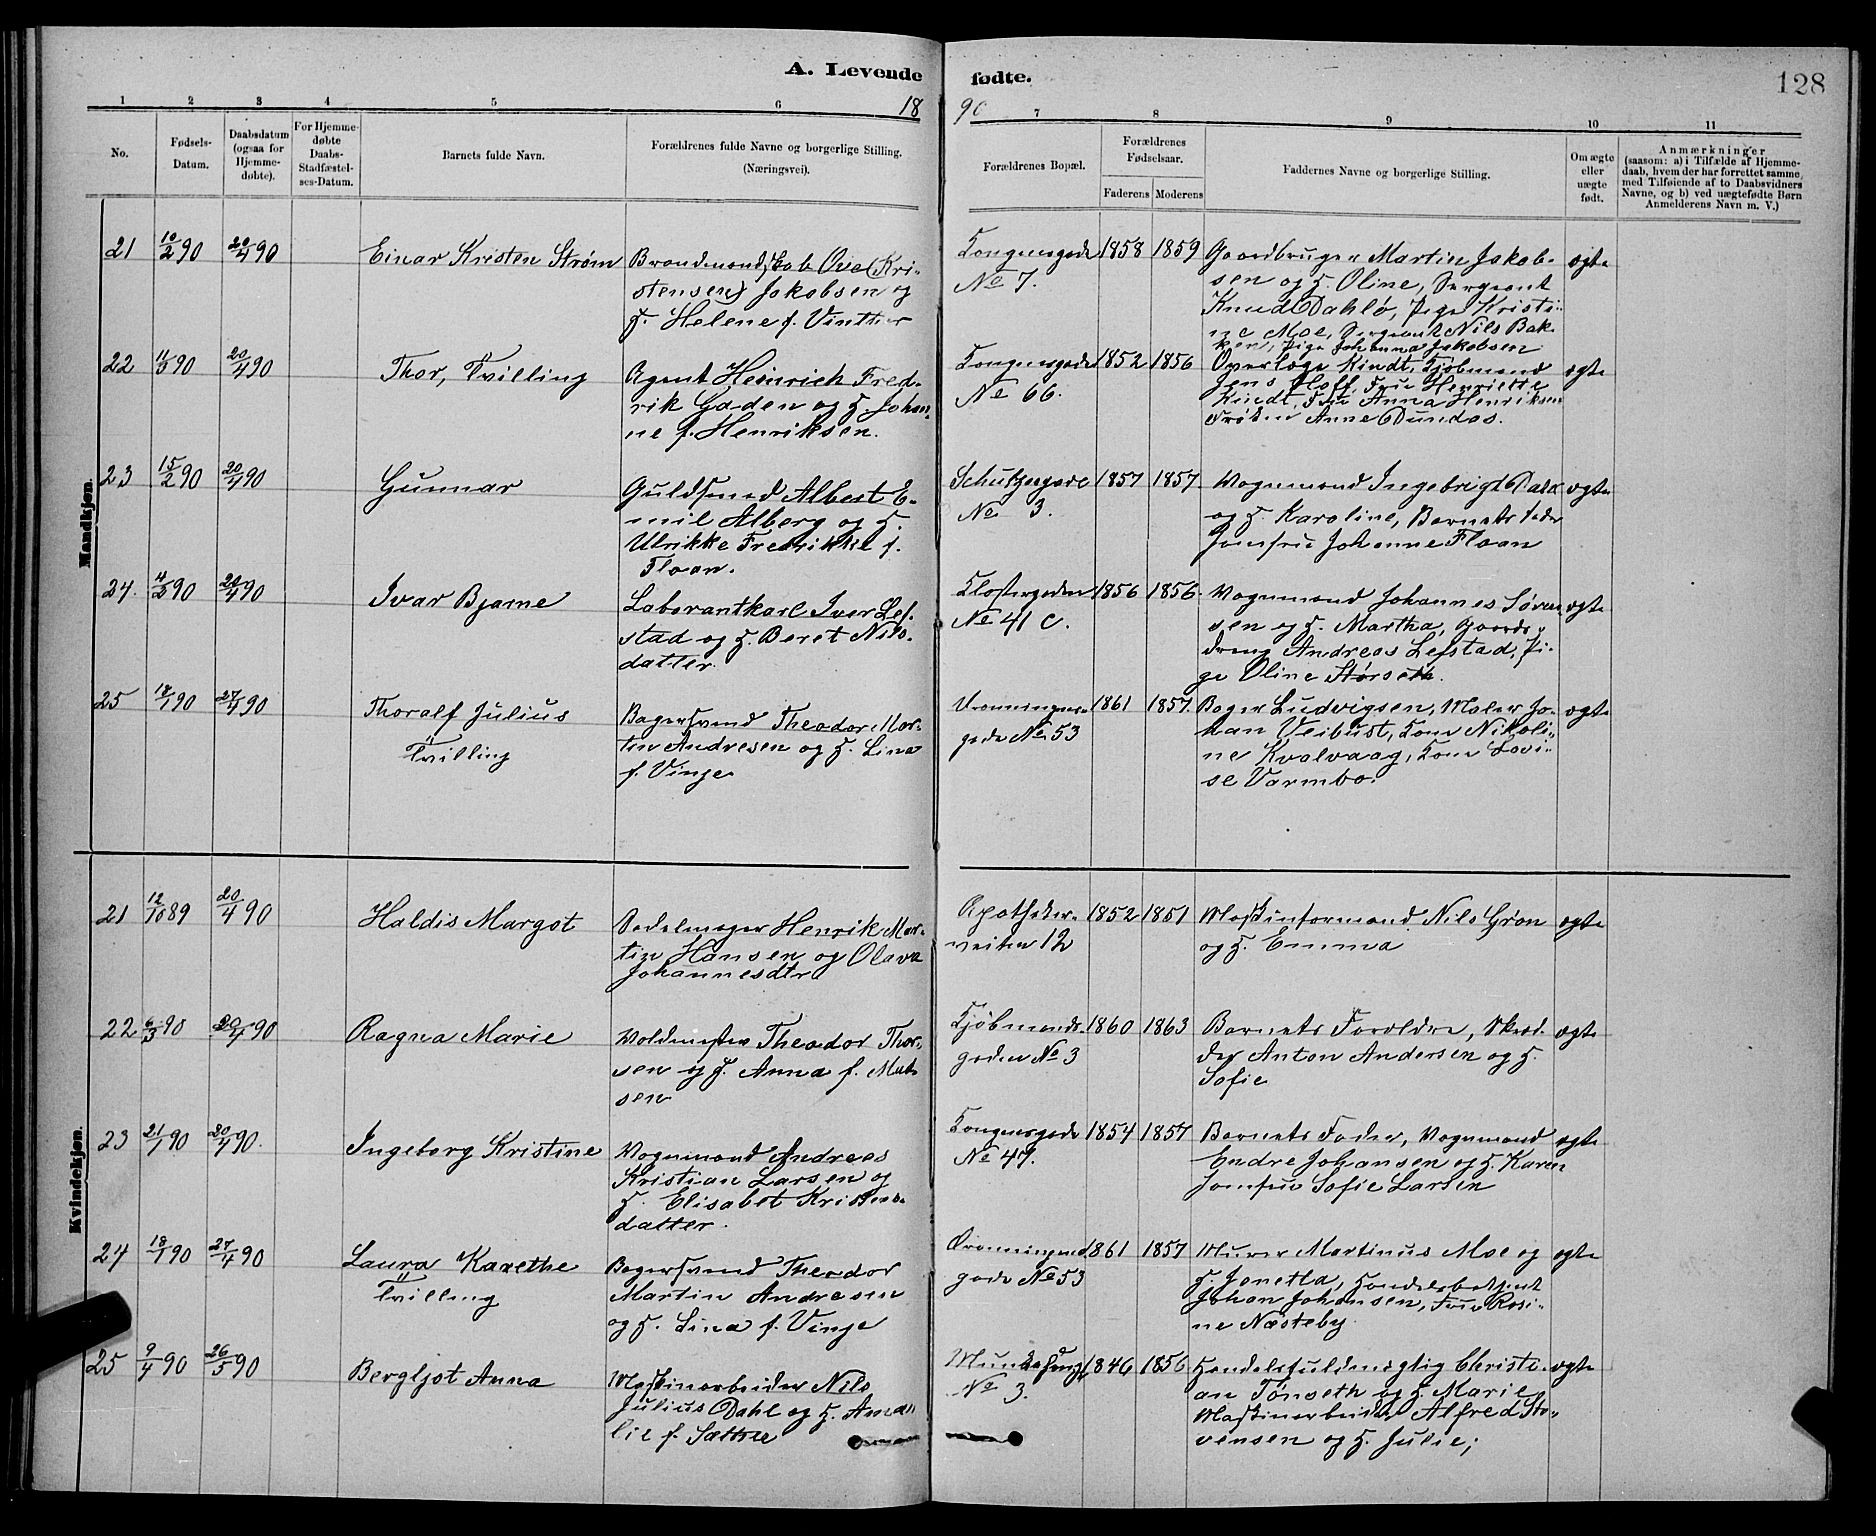 A. Levende
fødte.
128
1 2 3 4 5 6 18
90 7 8 9 10 11
No.
Fødsels-
Datum.
Daabsdatum
(ogsaa for
Hjemme-
døbte).
For Hjemme-
døbte
Daabs-
Stadfæstel-
ses-Datum.
Barnets fulde Navn.
Forældrenes fulde Navne og borgerlige Stilling.
(Næringsvei).
Forældrenes Bopæl.
Forældrenes
Fødselsaar.
Faderens Moderens
Faddernes Navne og borgerlige Stilling.
Om ægte
eller
uægte
født.
Anmærkninger
(saasom: a) i Tilfælde af Hjemme-
daab, hvem der har forrettet samme,
med Tilføiende af to Daabsvidners
Navne, og b) ved uægtefødte Børn
Anmelderens Navn m. V.)
Mandkjøn.
21 10/2 90 20/4 90
Einar Kristen Strøm
Brandmandskab Ove (Kri-
stensen) Jakobsen og
H. Helene f. Vinther
Kongensgade
No 7.
1858 1859
Gaardbruger Martin Jakob-
sen og H. Oline, Sergeant
Knud Dahlø, Pige Kristi-
ne Moe, Sergeant Nils Bak-
ken, Pige Johanna Jakobsen
ægte
22 11/3 90 20/4 90
Thor, Tvilling
Agent Heinrich Fred-
rik Gaden og H. Johan-
ne f. Henriksen.
Kongensgade
No 66.
1852 1856
Overlæge Kindt, Kjøbmand
Jens Hoff, Frue Henriette
Kindt, Frue Anna Henriksen
Frøken Anne Dundas.
ægte
23 15/2 90 20/4 90
Gunnar
Guldsmed Albert E-
mil Alberg og H.
Ulrikke Fredrikke f.
Floan.
Schultzegade
No 3.
1857 1857
Vognmand Ingebrigt Dahl
og H. Karoline, Barnets Fader
Jomfru Johanne Floan
ægte
24. 4/2 90 20/4 90
Ivar Bjarne
Laborantkarl Iver Lef-
stad og H. Beret Nils-
datter.
Klostergaden
No 41 c.
1856 1856.
Vognmand Johannes Søren-
sen og H. Martha, Gaards-
dreng Andreas Lefstad, Pi-
ge Oline Størseth.
ægte
25 18/1 90 27/4 90
Thoralf Julius
Tvilling
Bagersvend Theodor Mor-
tin Andresen og H. Lina
f. Vinje
Dronningens
gade No 53
1861 1857.
Bager Ludvigsen, Maler Jo-
han Veibust, Kone Nikoli-
ne Kvalvaag, Kone Lovi-
se Varmbo.
ægte
Kvindekjøn.
21 12/10 89 20/4 90
Haldis Margot
Sadelmager Henrik Mar-
tin Hansen og Olava
Johannesdtr
Apotheker-
veiten 12
1852 1851
Maskinformand Nils Grøn
og H. Emma
ægte
22 6/3 90 20/4 90
Ragna Marie
Voldmester Theodor Thor-
sen og H. Anna f. Mad-
sen
Kjøbmands-
gaden No 3
1860 1863
Barnets Forældre, Skræd-
der Anton Andersen og H.
Sofie
ægte
23 21/1 90 20/4 90.
Ingeborg Kristine
Vognmand Andreas
Kristian Larsen og
H. Elisabet Kristens-
datter.
Kongensgade
No 47.
1854 1857
Barnets Fader, Vognmand
Endre Johansen og H. Karen
Jomfru Sofie Larsen
ægte
24 18/1 90 27/4 90
Laura Karethe
Tvilling
Bagersvend Theodor
Martin Andresen
og H. Lina f. Vinje
Dronningens
gade No 53
1861 1857
Murer Martinus Moe og
H. Jonetta, Handelsbetjent
Johan Johansen, Frue Rosi-
ne Næsteby.
ægte
25 9/4 90 26/5 90
Bergljot Anna
Maskinarbeider Nils
Julius Dahl og H. Ama-
lie f. Sættre
No 3.
1846 1856.
Handelsfuldmægtig Christi-
an Tønseth og H. Marie
Maskinarbeider Alfred Sto-
vensen og H. Julie;
ægte